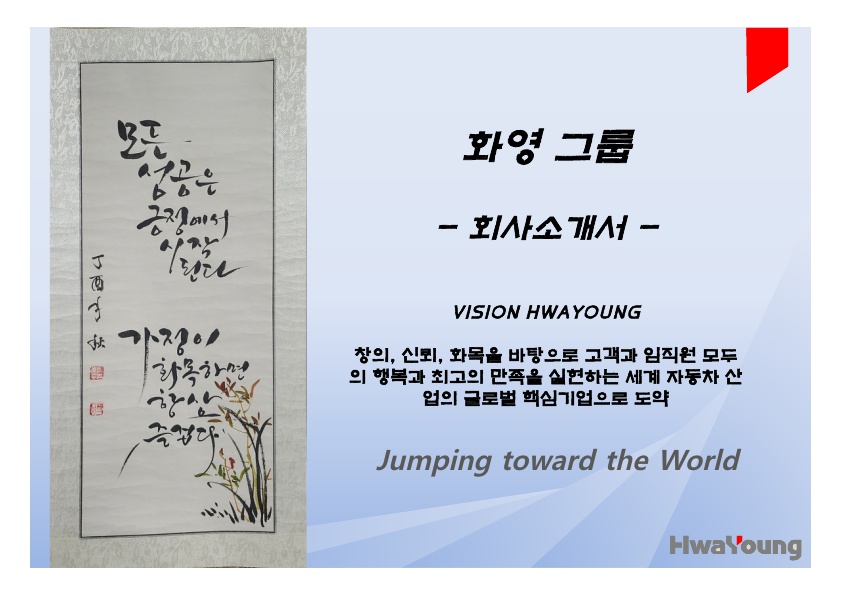 모든
성공은
긍정에서
시작
된다
丁酉年 秋
가정이
화목하면
항상
즐겁다
화영 그룹
- 회사소개서 -
VISION HWAYOUNG
창의, 신뢰, 화목을 바탕으로 고객과 임직원 모두
의 행복과 최고의 만족을 실현하는 세계 자동차 산
업의 글로벌 핵심기업으로 도약
Jumping toward the World
HwaYoung